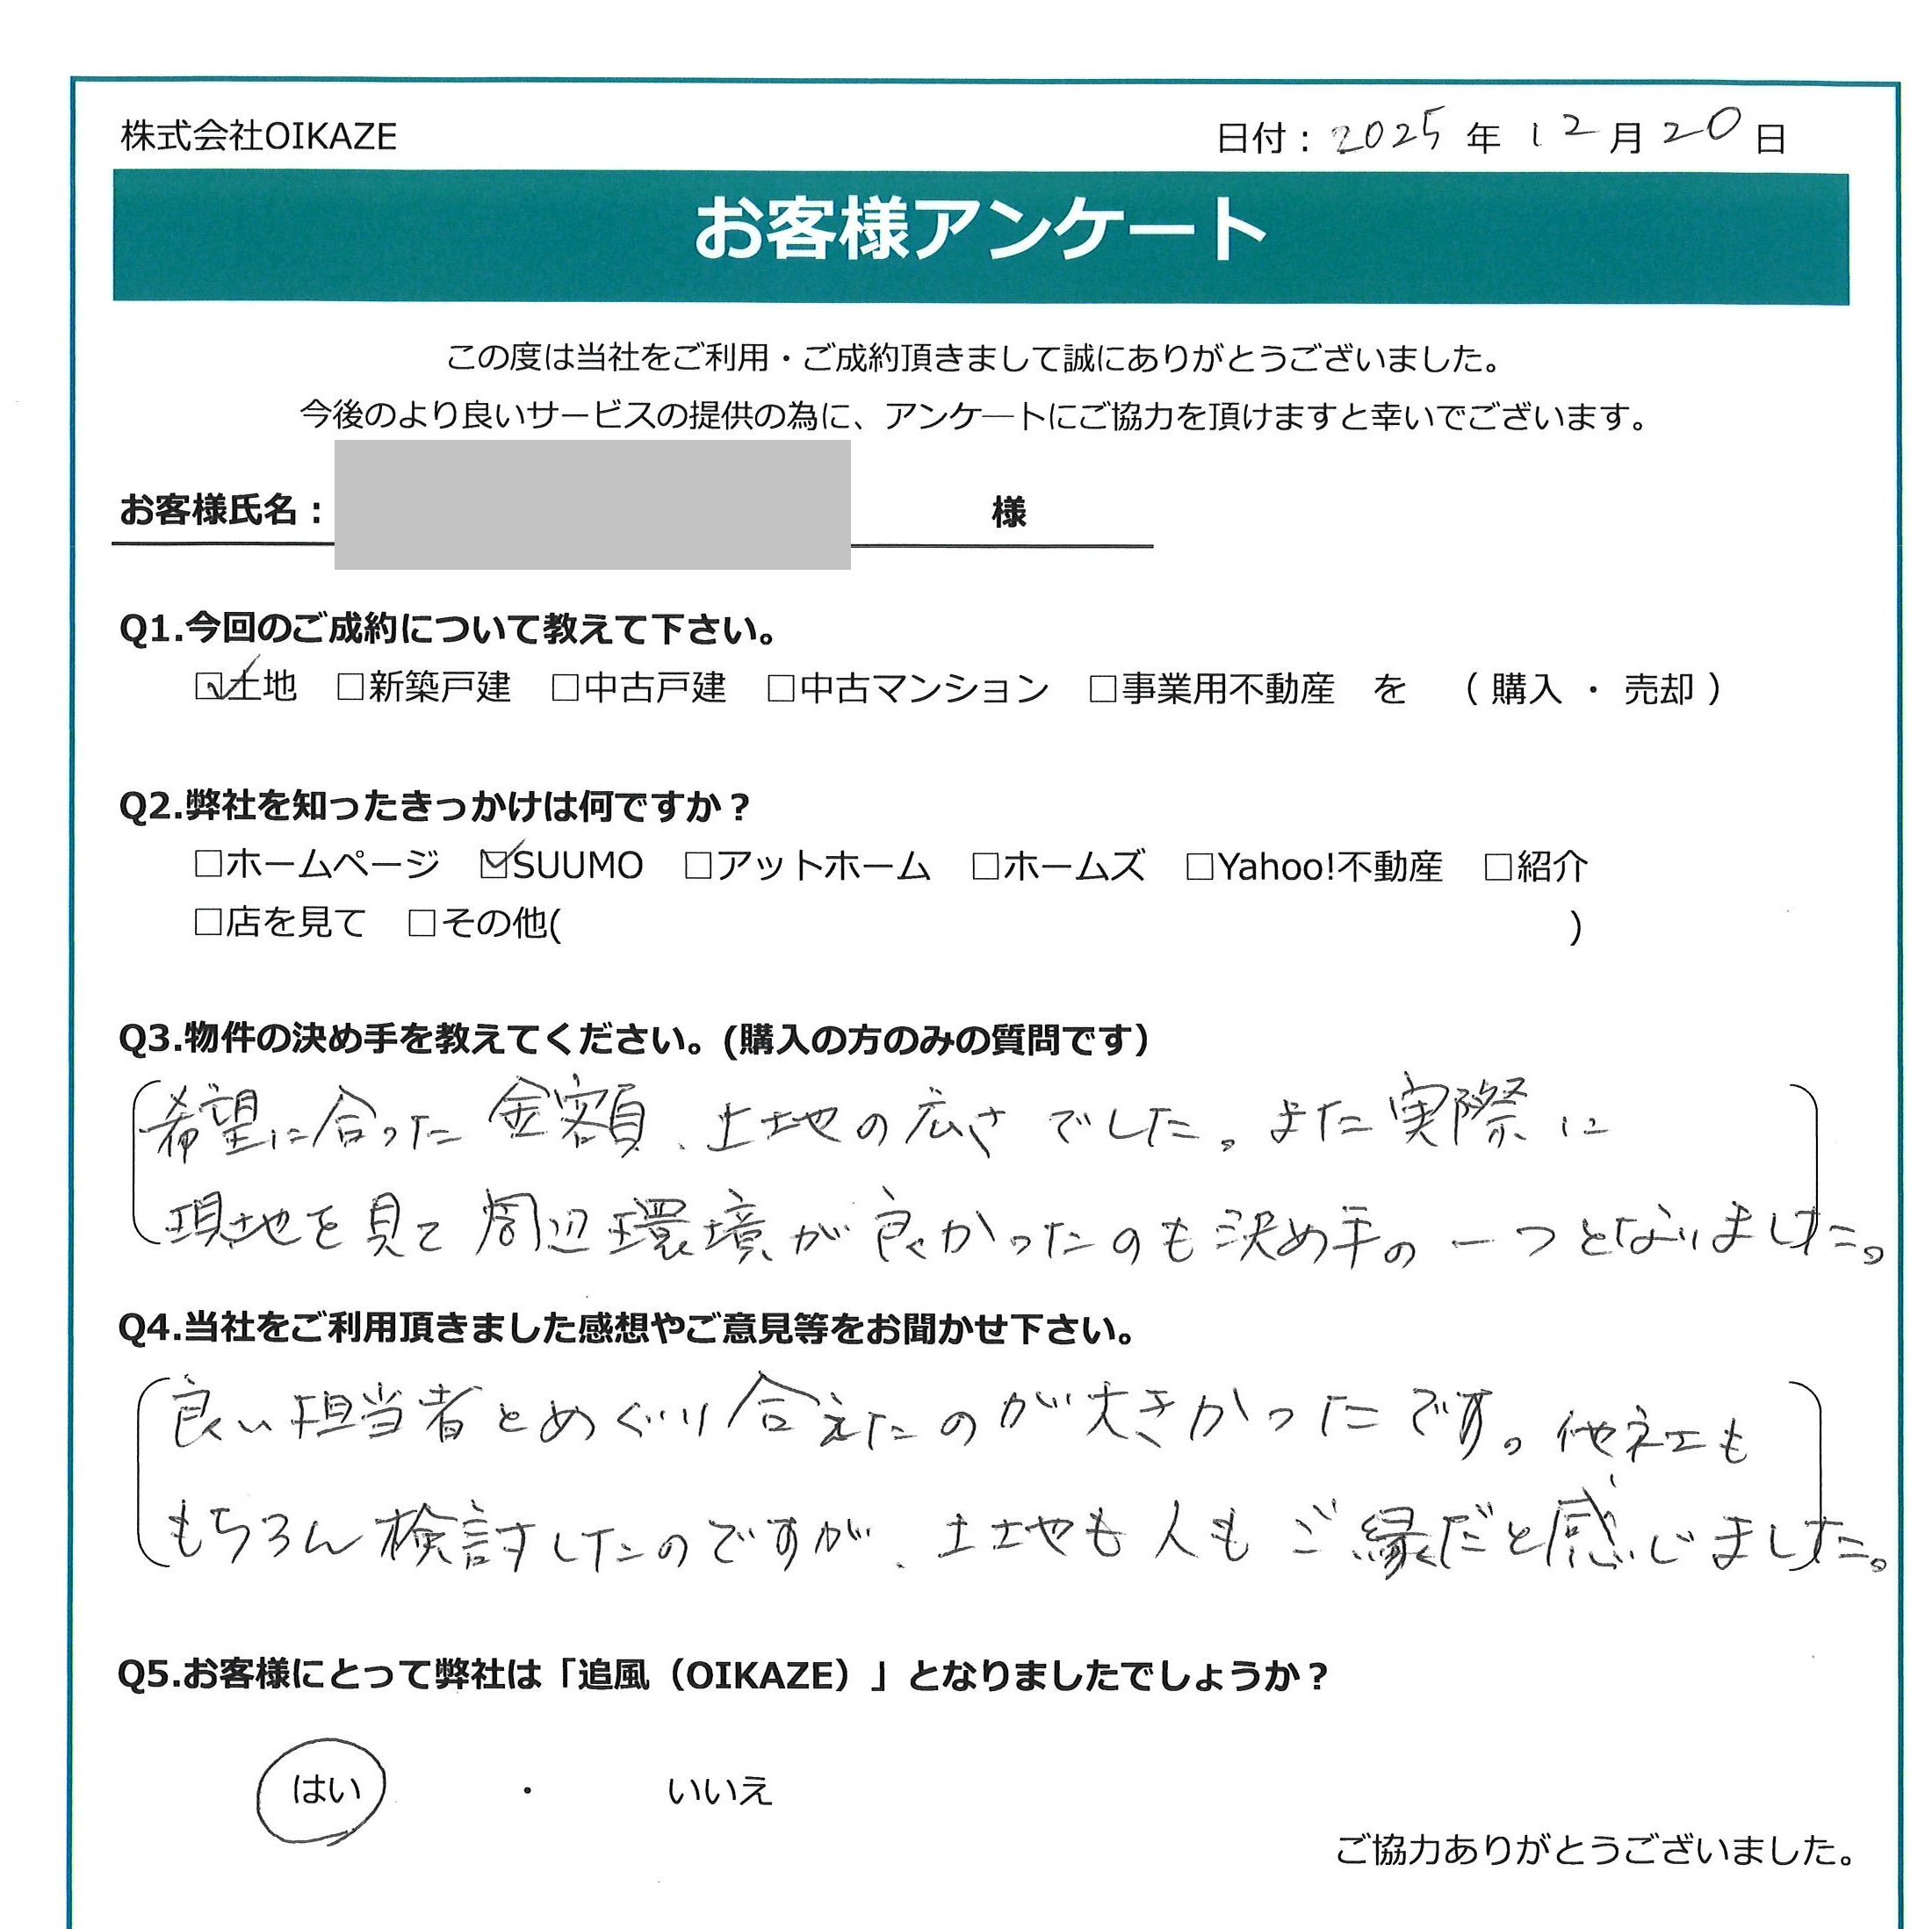 株式会社OIKAZE 日付：2025年12月20日
お客様アンケート
この度は当社をご利用・ご成約頂きまして誠にありがとうございました。
今後のより良いサービスの提供の為に、アンケートにご協力を頂けますと幸いでございます。
お客様氏名： 様
Q1.今回のご成約について教えて下さい。
☑土地 □新築戸建 □中古戸建 □中古マンション □事業用不動産 を （ 購入 ・ 売却 ）
Q2.弊社を知ったきっかけは何ですか？
□ホームページ ☑SUUMO □アットホーム □ホームズ □Yahoo!不動産 □紹介
□店を見て □その他( )
Q3.物件の決め手を教えてください。(購入の方のみの質問です）
希望に合った金額、土地の広さでした。また実際に
現地を見て周辺環境が良かったのも決め手の一つとなりました。
Q4.当社をご利用頂きました感想やご意見等をお聞かせ下さい。
良い担当者とめぐり合えたのが大きかったです。他社も
もちろん検討したのですが、土地も人もご縁だと感じました。
Q5.お客様にとって弊社は「追風（OIKAZE）」となりましたでしょうか？
はい ・ いいえ
ご協力ありがとうございました。